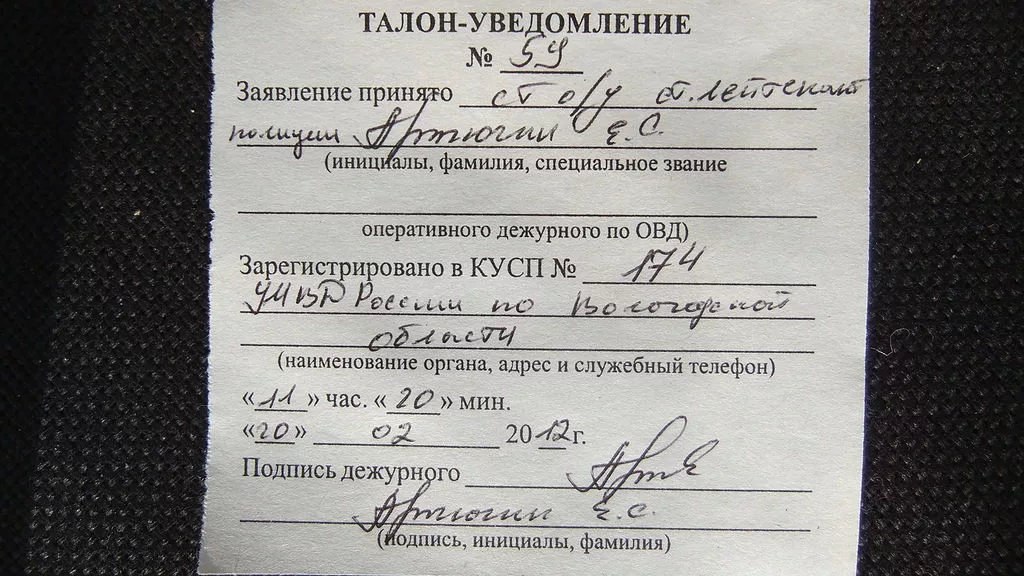 ТАЛОН-УВЕДОМЛЕНИЕ
№ 59
Заявление принято ст о/у ст. лейтенант
полиции Артюгин Е.С.
(инициалы, фамилия, специальное звание
оперативного дежурного по ОВД)
Зарегистрировано в КУСП № 174
УМВД России по Вологодской
области
(наименование органа, адрес и служебный телефон)
«11» час. «20» мин.
«20» 02 2012г.
Подпись дежурного
Артюгин Е.С.
(подпись, инициалы, фамилия)